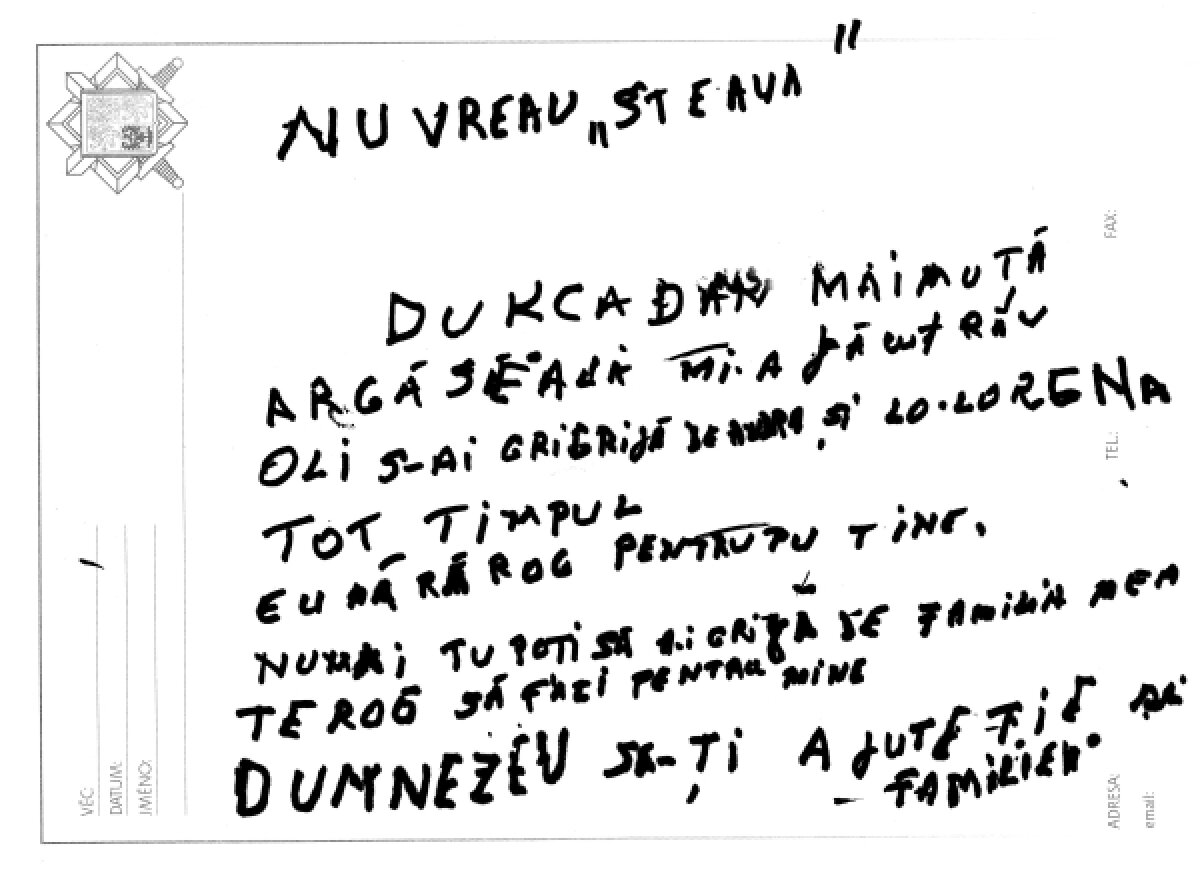 NU VREAU „STEAUA"
DUKCADAN MAIMUȚĂ
ARGĂSEALĂ MI-A FĂCUT RĂU
OLI S-AI GRIGRIJĂ DE ANDRA ȘI LO.LORENA
TOT TIMPUL
EU MĂ RĂ ROG PENTRUPU TINE.
NUMAI TU POTI SĂ AI GRIJĂ DE FAMILIA MEA
TE ROG SĂ FACI PENTRU MINE
DUMNEZEU SĂ-ȚI AJUTE ȚIE
FAMILIEI
VĚC:
DATUM:
JMÉNO:
FAX:
TEL.:
ADRESA:
email: